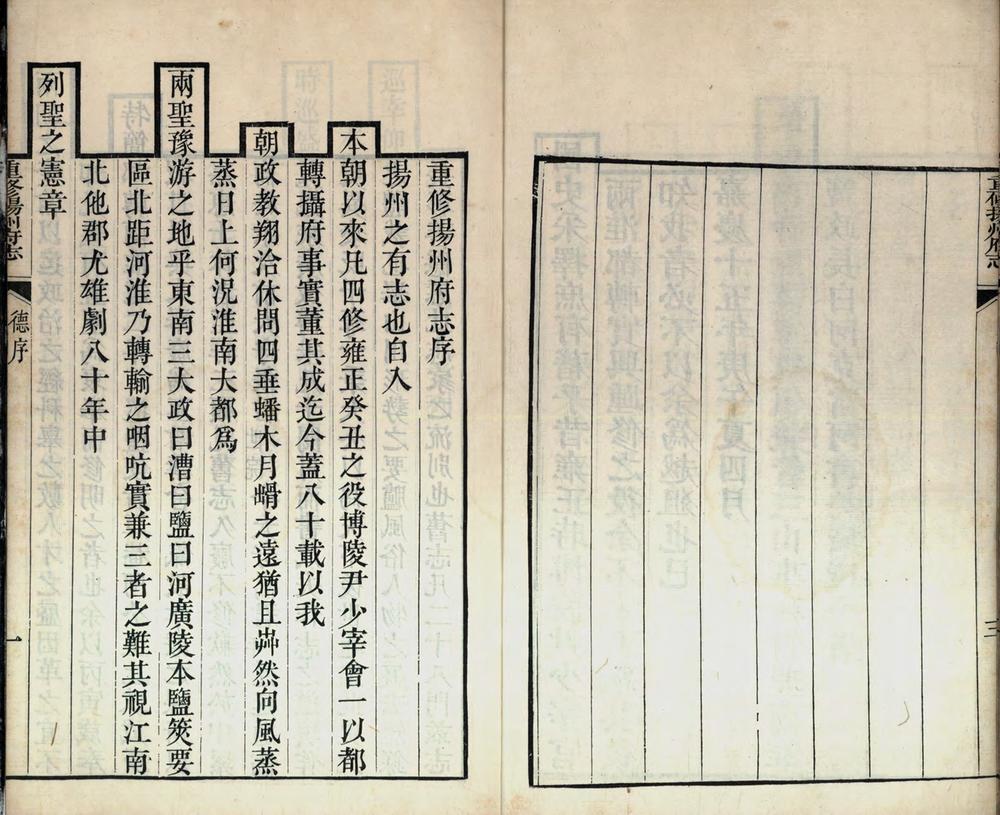 重修揚州府志
三
重修揚州府志序
揚州之有志也自入
本朝以來凡四修雍正癸丑之役博陵尹少宰會一以都
轉攝府事實董其成迄今蓋八十載以我
朝政教翔洽休問四垂蟠木月𡺾之遠猶且茆然向風蒸
蒸日上何況淮南大都爲
兩聖豫游之地乎東南三大政曰漕曰鹽曰河廣陵本鹽筴要
區北距河淮乃轉輸之咽吭實兼三者之難其視江南
北他郡尤雄劇八十年中
列聖之憲章
重修揚州府志
德序
一